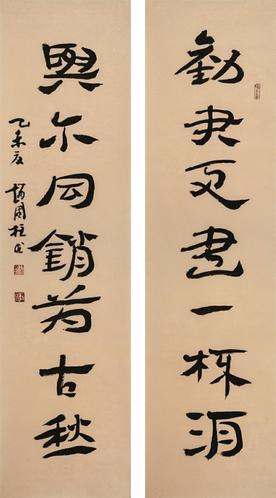 勸君更盡一杯酒
與尔同銷萬古愁
乙未夏